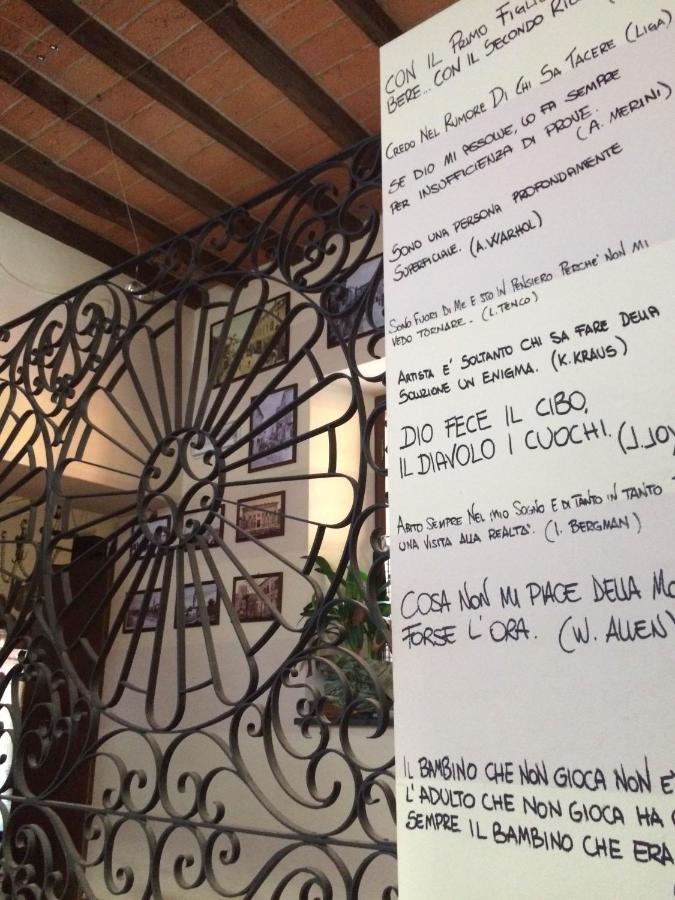 CON IL PRIMO FIGLIO
BERE... CON IL SECONDO
CREDO NEL RUMORE DI CHI SA TACERE (LIGA)
SE DIO MI ASSOLVE, LO FA SEMPRE
PER INSUFFICIENZA DI PROVE.
(A. MERINI)
SONO UNA PERSONA PROFONDAMENTE
SUPERFICIALE. (A. WARHOL)
SONO FUORI DI ME E STO IN PENSIERO PERCHE' NON MI
VEDO TORNARE. (L. TENCO)
ARTISTA E' SOLTANTO CHI SA FARE DELLA
SOLUZIONE UN ENIGMA. (K. KRAUS)
DIO FECE IL CIBO,
IL DIAVOLO I CUOCHI. (J. JOY
ABITO SEMPRE NEL MIO SOGNO E DI TANTO IN TANTO
UNA VISITA ALLA REALTA'. (I. BERGMAN)
COSA NON MI PIACE DELLA MO
FORSE L'ORA. (W. ALLEN)
IL BAMBINO CHE NON GIOCA NON E'
L'ADULTO CHE NON GIOCA HA
SEMPRE IL BAMBINO CHE ERA